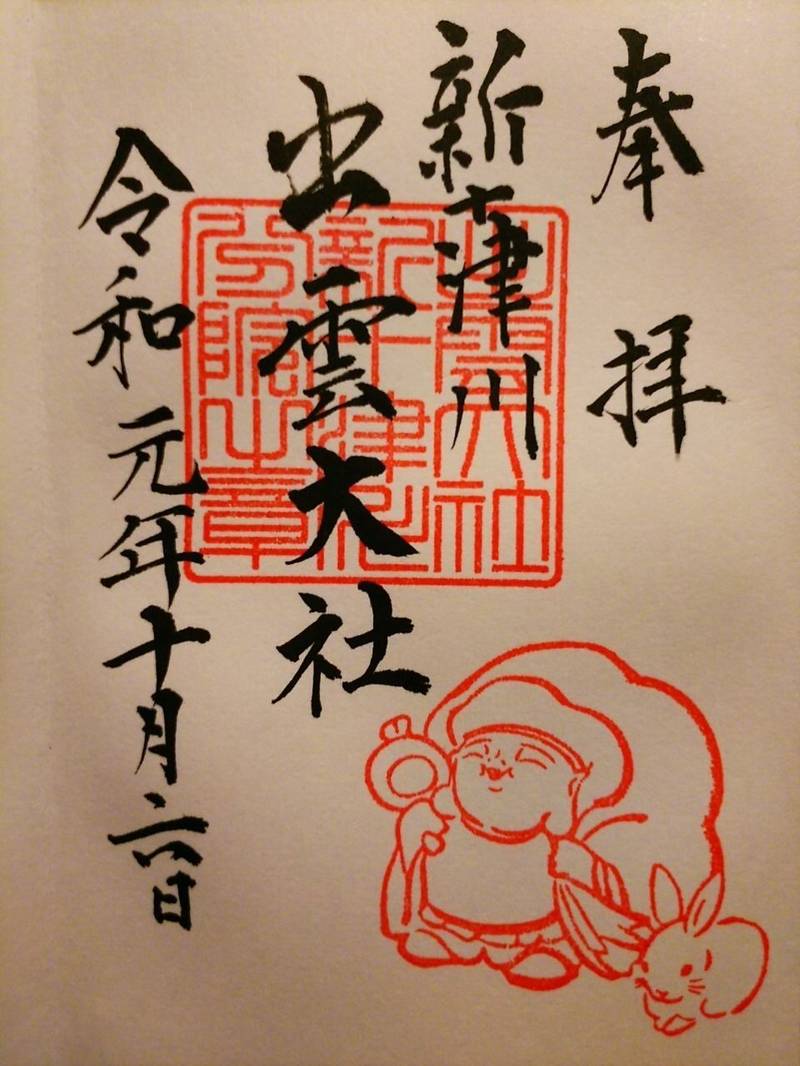 奉拝
新十津川
出雲大社
令和元年十月六日
出雲大社
新十津川
分院之章